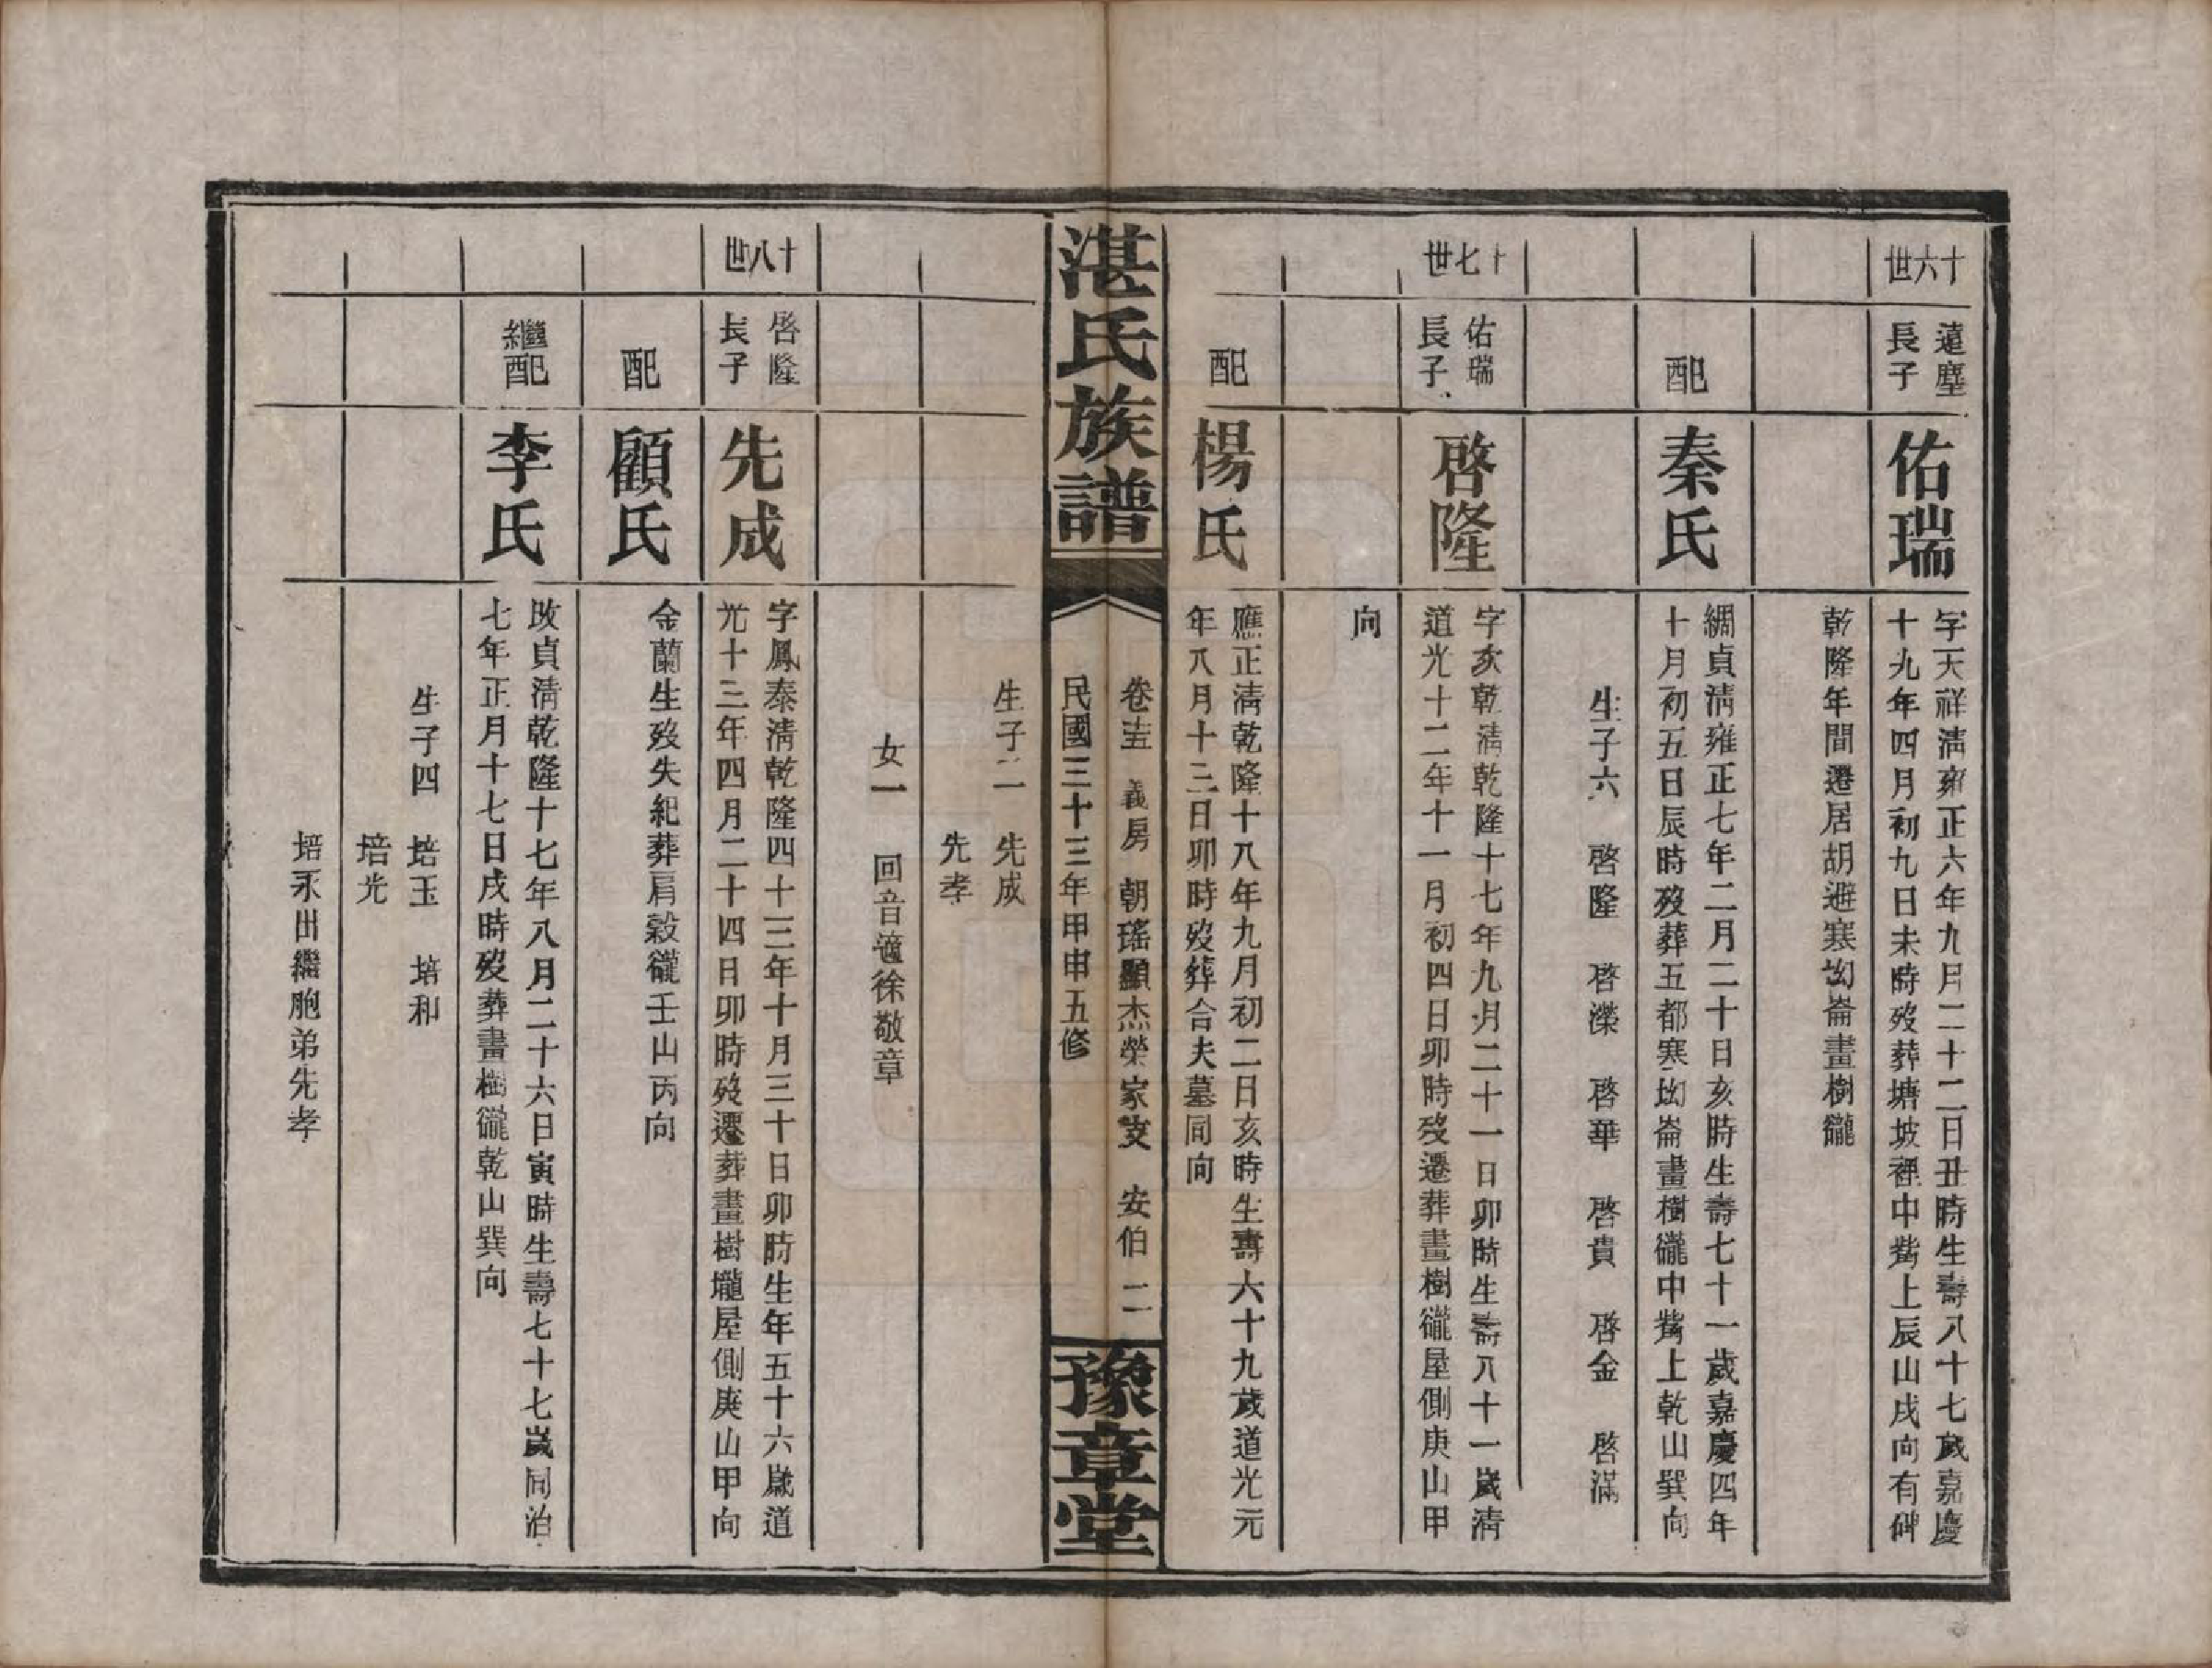 十六世
遠塵
長子
佑瑞
字天祥清雍正六年九月二十二日丑時生壽八十七歲嘉慶
十九年四月初九日未時歿葬塘坡裡中嘴上辰山戌向有碑
乾隆年間遷居胡遊寒坳崙畫樹
配
秦氏
綢貞清雍正七年二月二十日亥時生壽七十一歲嘉慶四年
十月初五日辰時歿葬五都寒坳崙畫樹中嘴上乾山巽向
生子六 啓隆 啓濚 啓華 啓貴 啓金 啓滿
十七世
佑瑞
長子
啓隆
字亥乾清乾隆十七年九月二十一日卯時生壽八十一歲清
道光十二年十一月初四日卯時歿遷葬畫樹屋側庚山甲
向
配
楊氏
應正清乾隆十八年九月初二日亥時生壽六十九歲道光元
年八月十三日卯時歿葬合夫墓同向
湛氏族譜
卷 義房 朝瑤顯杰榮家支 安伯 二
民國三十三年甲申五修
豫章堂
生子二 先成
先孝
女一 回音適徐敬章
十八世
啓隆
長子
先成
字鳳泰清乾隆四十三年十月三十日卯時生年五十六歲道
光十三年四月二十四日卯時歿遷葬畫樹壠屋側庚山甲向
配
顧氏
金蘭生歿失紀葬肩穀壬山丙向
繼配
李氏
改貞清乾隆十七年八月二十六日寅時生壽七十七歲同治
七年正月十七日戌時歿葬畫樹乾山巽向
生子四 培玉 培和
培光
培永出繼胞弟先孝